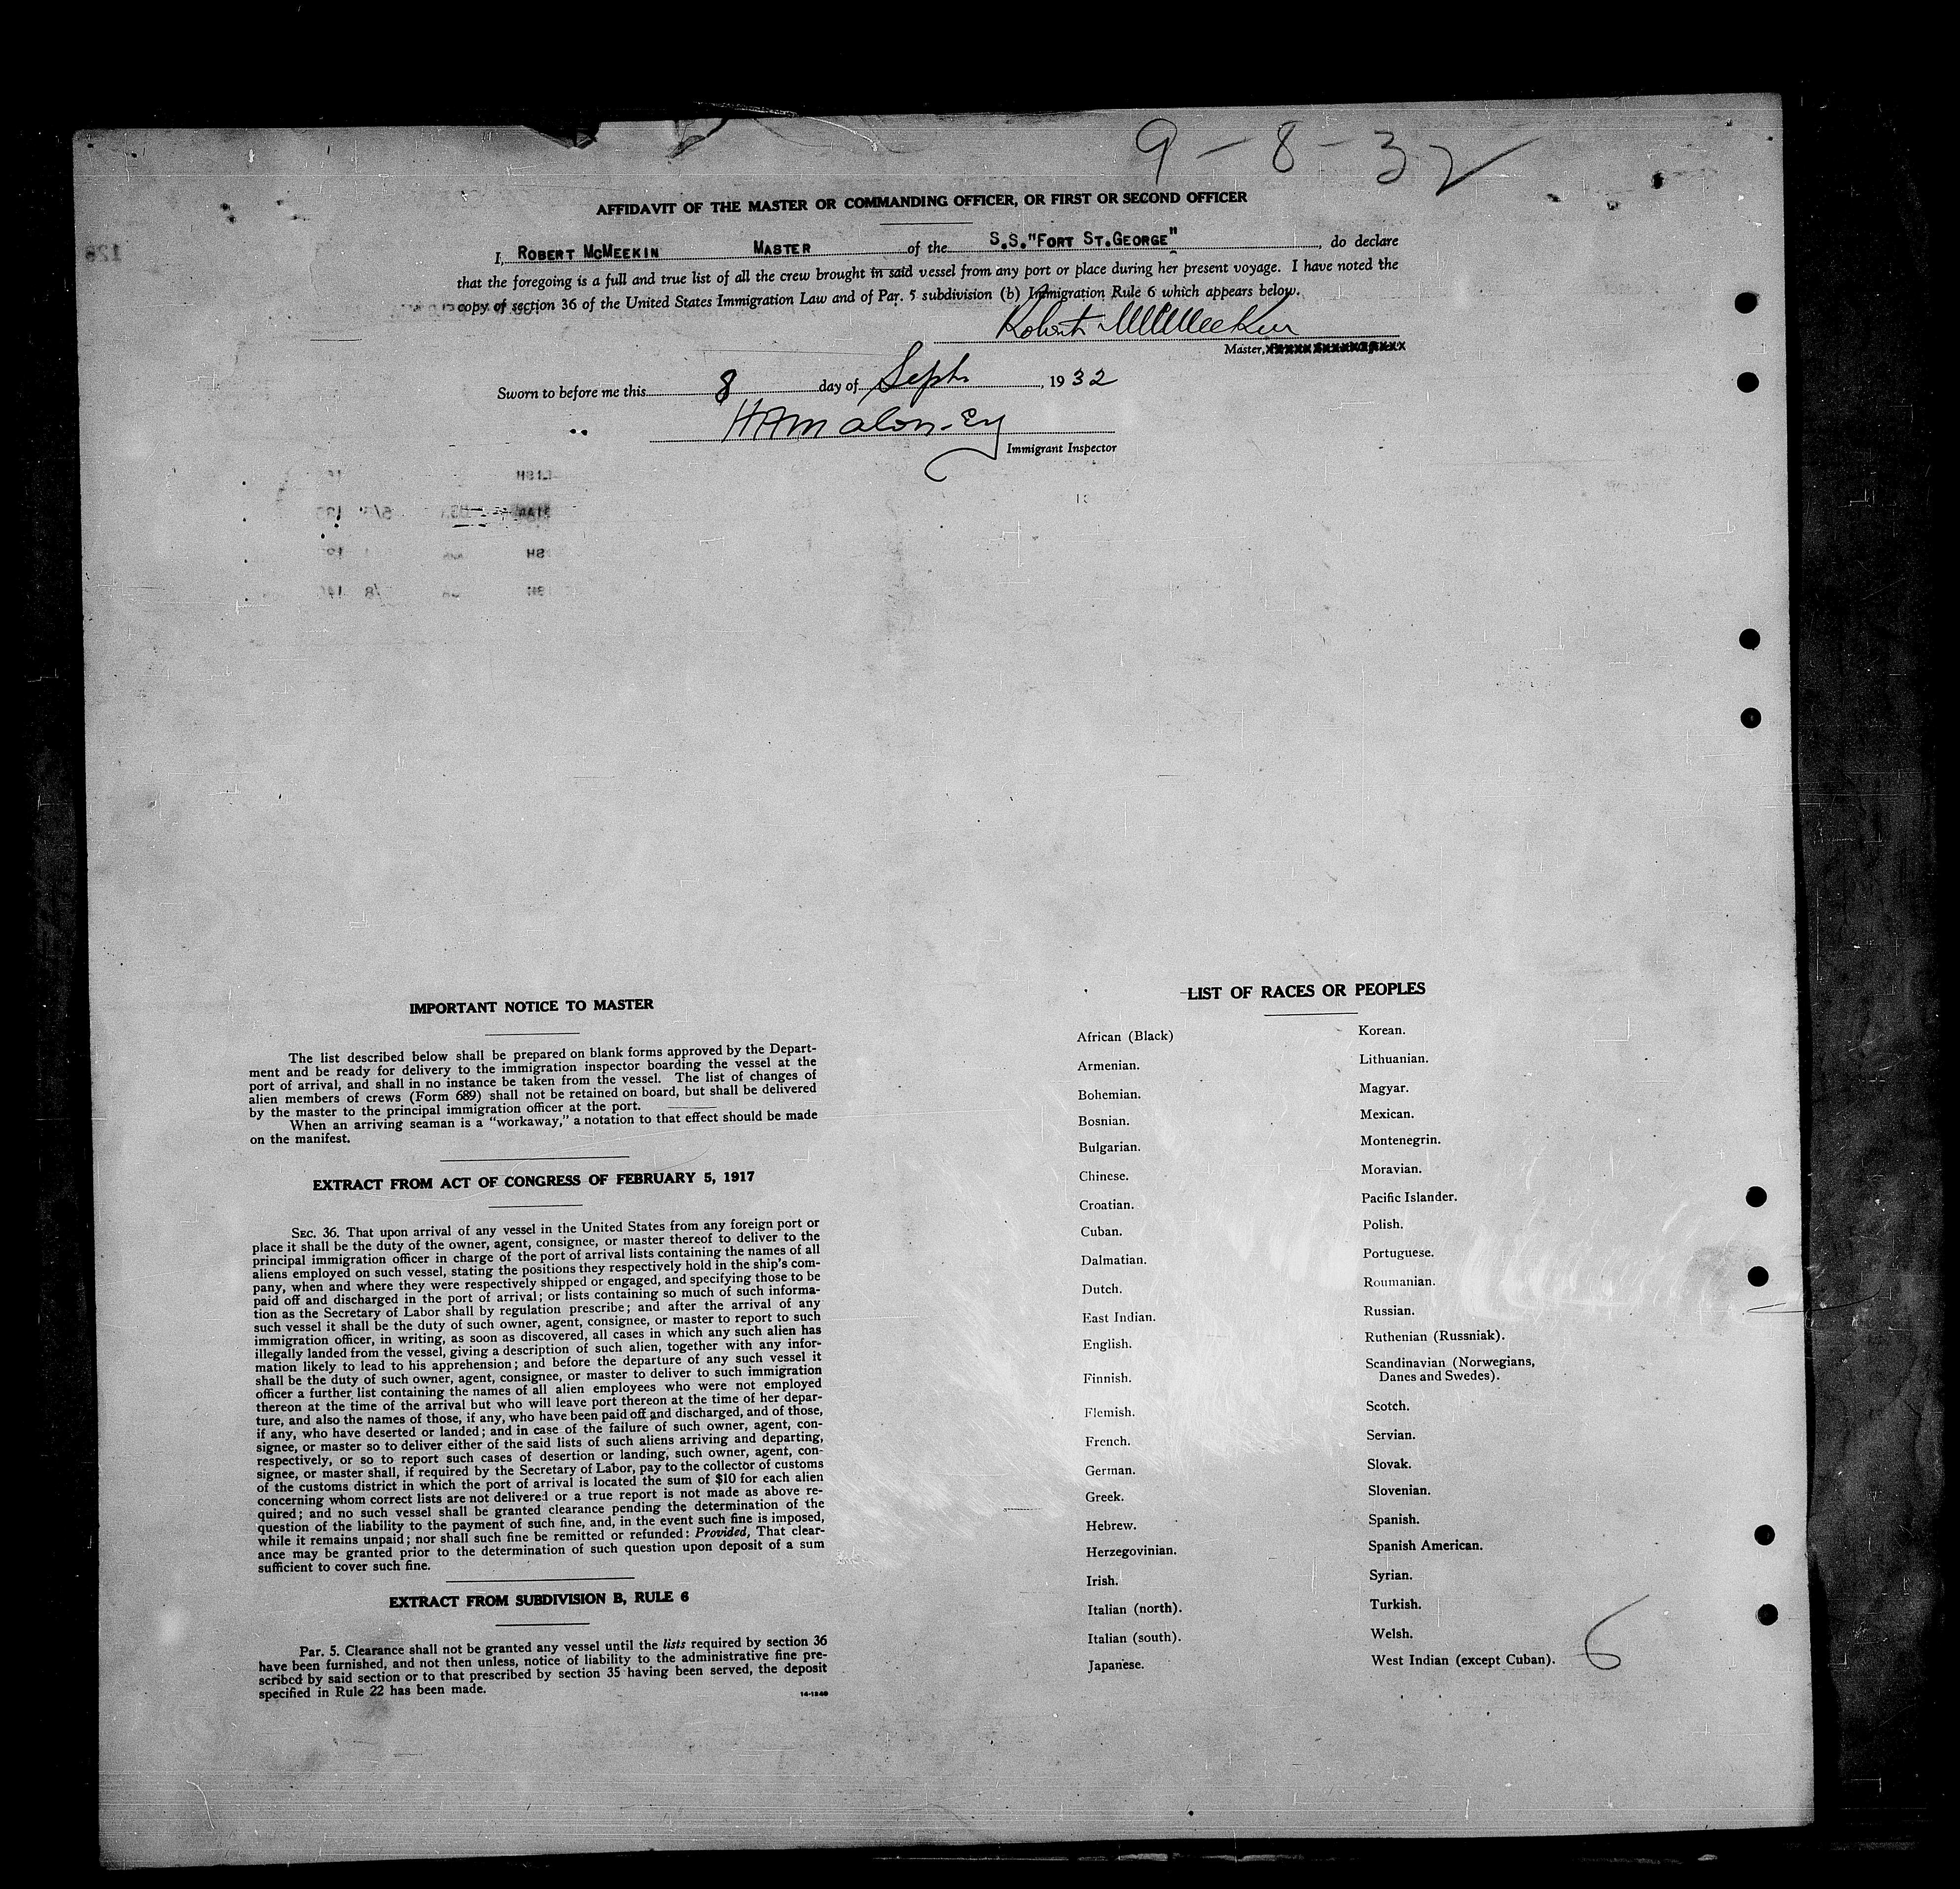 9-8-32
AFFIDAVIT OF THE MASTER OR COMMANDING OFFICER, OR FIRST OR SECOND OFFICER
I, ROBERT MCMEEKIN MASTER of the S.S."FORT ST.GEORGE", do declare
that the foregoing is a full and true list of all the crew brought in said vessel from any port or place during her present voyage. I have noted the
copy of section 36 of the United States Immigration Law and of Par. 5 subdivision (b) Immigration Rule 6 which appears below.
Robert McMeekin
Master,
Sworn to before me this 8 day of Sept. , 1932
HAMaloney
Immigrant Inspector
IMPORTANT NOTICE TO MASTER
The list described below shall be prepared on blank forms approved by the Depart-
ment and be ready for delivery to the immigration inspector boarding the vessel at the
port of arrival, and shall in no instance be taken from the vessel. The list of changes of
alien members of crews (Form 689) shall not be retained on board, but shall be delivered
by the master to the principal immigration officer at the port.
When an arriving seaman is a "workaway," a notation to that effect should be made
on the manifest.
EXTRACT FROM ACT OF CONGRESS OF FEBRUARY 5, 1917
SEC. 36. That upon arrival of any vessel in the United States from any foreign port or
place it shall be the duty of the owner, agent, consignee, or master thereof to deliver to the
principal immigration officer in charge of the port of arrival lists containing the names of all
aliens employed on such vessel, stating the positions they respectively hold in the ship's com-
pany, when and where they were respectively shipped or engaged, and specifying those to be
paid off and discharged in the port of arrival; or lists containing so much of such informa-
tion as the Secretary of Labor shall by regulation prescribe; and after the arrival of any
such vessel it shall be the duty of such owner, agent, consignee, or master to report to such
immigration officer, in writing, as soon as discovered, all cases in which any such alien has
illegally landed from the vessel, giving a description of such alien, together with any infor-
mation likely to lead to his apprehension; and before the departure of any such vessel it
shall be the duty of such owner, agent, consignee, or master to deliver to such immigration
officer a further list containing the names of all alien employees who were not employed
thereon at the time of the arrival but who will leave port thereon at the time of her depar-
ture, and also the names of those, if any, who have been paid off and discharged, and of those,
if any, who have deserted or landed; and in case of the failure of such owner, agent, con-
signee, or master so to deliver either of the said lists of such aliens arriving and departing,
respectively, or so to report such cases of desertion or landing, such owner, agent, con-
signee, or master shall, if required by the Secretary of Labor, pay to the collector of customs
of the customs district in which the port of arrival is located the sum of $10 for each alien
concerning whom correct lists are not delivered or a true report is not made as above re-
quired; and no such vessel shall be granted clearance pending the determination of the
question of the liability to the payment of such fine, and, in the event such fine is imposed,
while it remains unpaid; nor shall such fine be remitted or refunded: Provided, That clear-
ance may be granted prior to the determination of such question upon deposit of a sum
sufficient to cover such fine.
EXTRACT FROM SUBDIVISION B, RULE 6
Par. 5. Clearance shall not be granted any vessel until the lists required by section 36
have been furnished, and not then unless, notice of liability to the administrative fine pre-
scribed by said section or to that prescribed by section 35 having been served, the deposit
specified in Rule 22 has been made.
14-1240
LIST OF RACES OR PEOPLES
African (Black)
Armenian.
Bohemian.
Bosnian.
Bulgarian.
Chinese.
Croatian.
Cuban.
Dalmatian.
Dutch.
East Indian.
English.
Finnish.
Flemish.
French.
German.
Greek.
Hebrew.
Herzegovinian.
Irish.
Italian (north).
Italian (south).
Japanese.
Korean.
Lithuanian.
Magyar.
Mexican.
Montenegrin.
Moravian.
Pacific Islander.
Polish.
Portuguese.
Roumanian.
Russian.
Ruthenian (Russniak).
Scandinavian (Norwegians,
Danes and Swedes).
Scotch.
Servian.
Slovak.
Slovenian.
Spanish.
Spanish American.
Syrian.
Turkish.
Welsh.
West Indian (except Cuban).
6